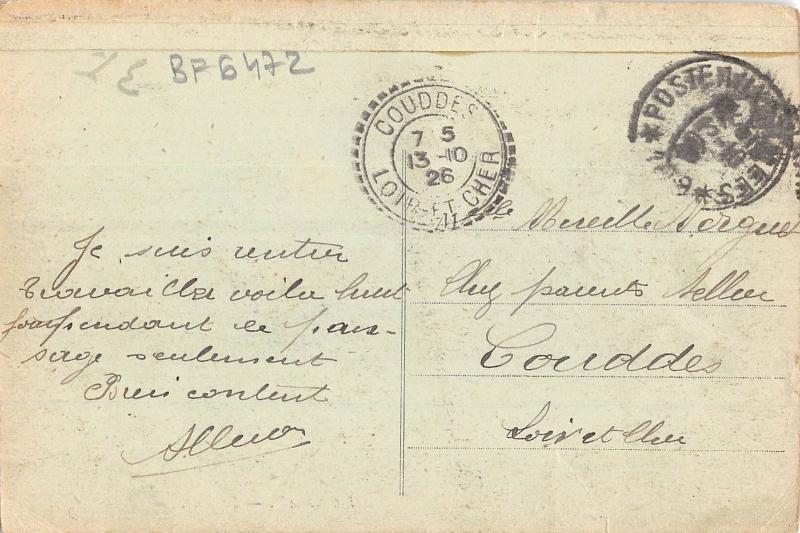 BF6472
COUDDES
7 5
13-10
26
LOIR-ET-CHER
41
* POSTE
Je suis rentrer
travailler voila huit
jour pendant ce pas-
sage seulement
Bien content
Mereille Norguet
Chez parents Sellier
Couddes
Loir et Cher